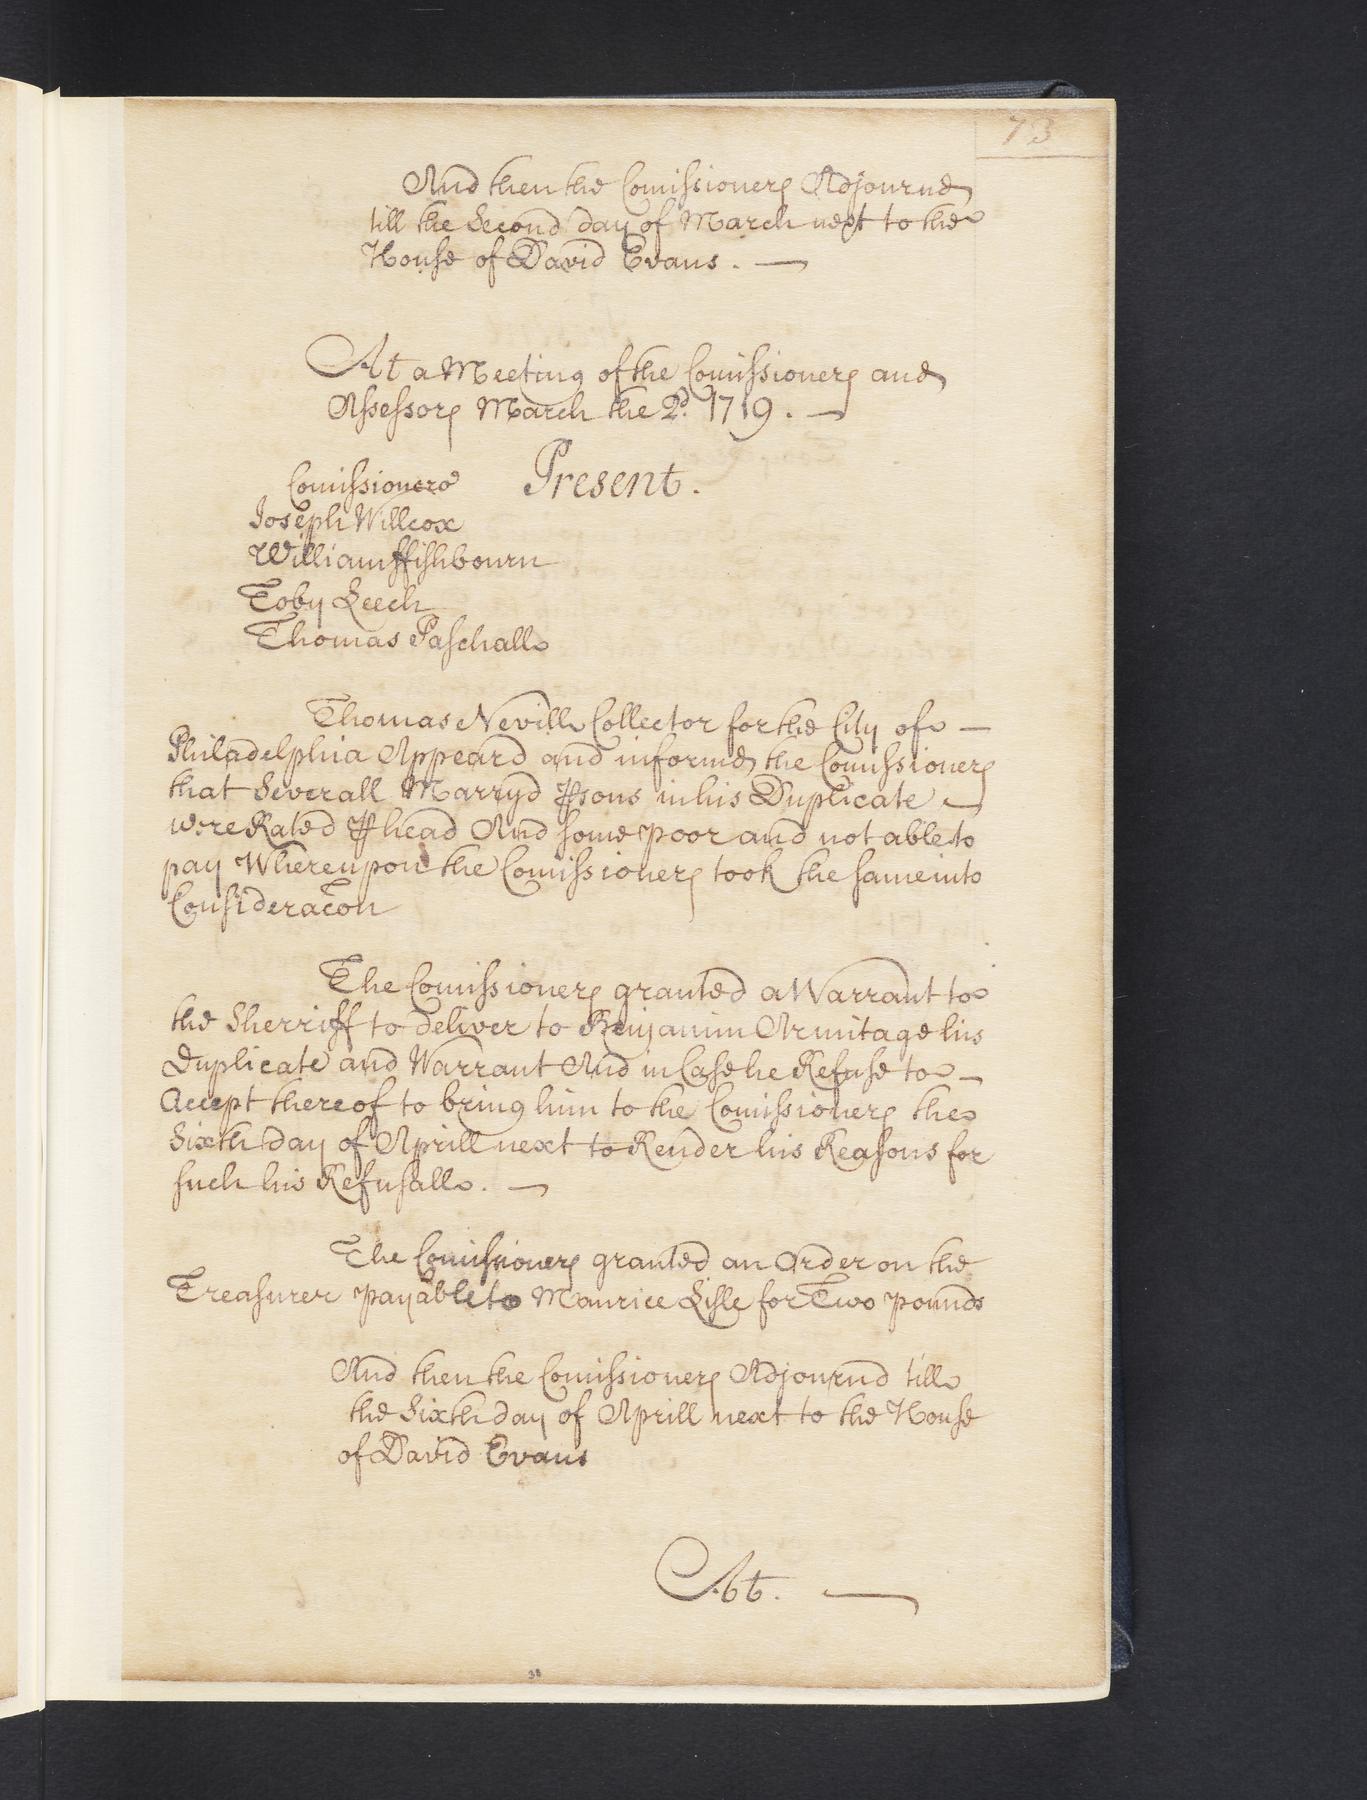 73
And then the Comissioners Adjournd
till the Second day of March next to the
House of David Evans. —
At a Meeting of the Comissioners and
Assessors March the 2d. 1719. —
Comissioners Present.
Joseph Willcox
William ffishbourn
Toby Leech
Thomas Paschall
Thomas Nevill Collector for the City of —
Philadelphia Appeard and informd the Comissioners
that Severall Marryd ꝑsons in his Duplicate —
were Rated ꝑ head And some poor and not able to
pay Whereupon the Comissioners took the same into
Consideracon
The Comissioners granted a Warrant to
the Sherriff to deliver to Benjamin Armitage his
Duplicate and Warrant And in Case he Refuse to —
Accept thereof to bring him to the Comissioners the
Sixth day of Aprill next to Render his Reasons for
such his Refusall. —
The Comissioners granted an Order on the
Treasurer payable to Maurice Lisle for Two pounds
And then the Comissioners Adjournd till
the Sixth day of Aprill next to the House
of David Evans
At. —
38